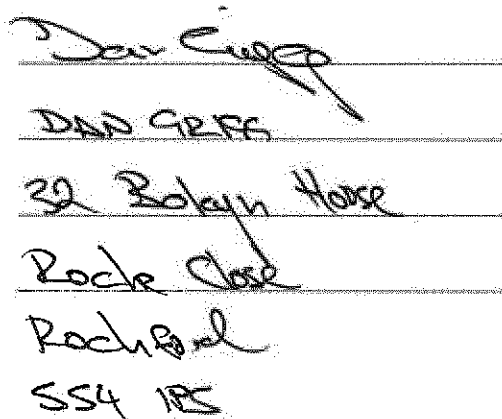 Dan
DAN GREGG
32 Boleyn House
Roche Close
Rochford
SS4 1PS